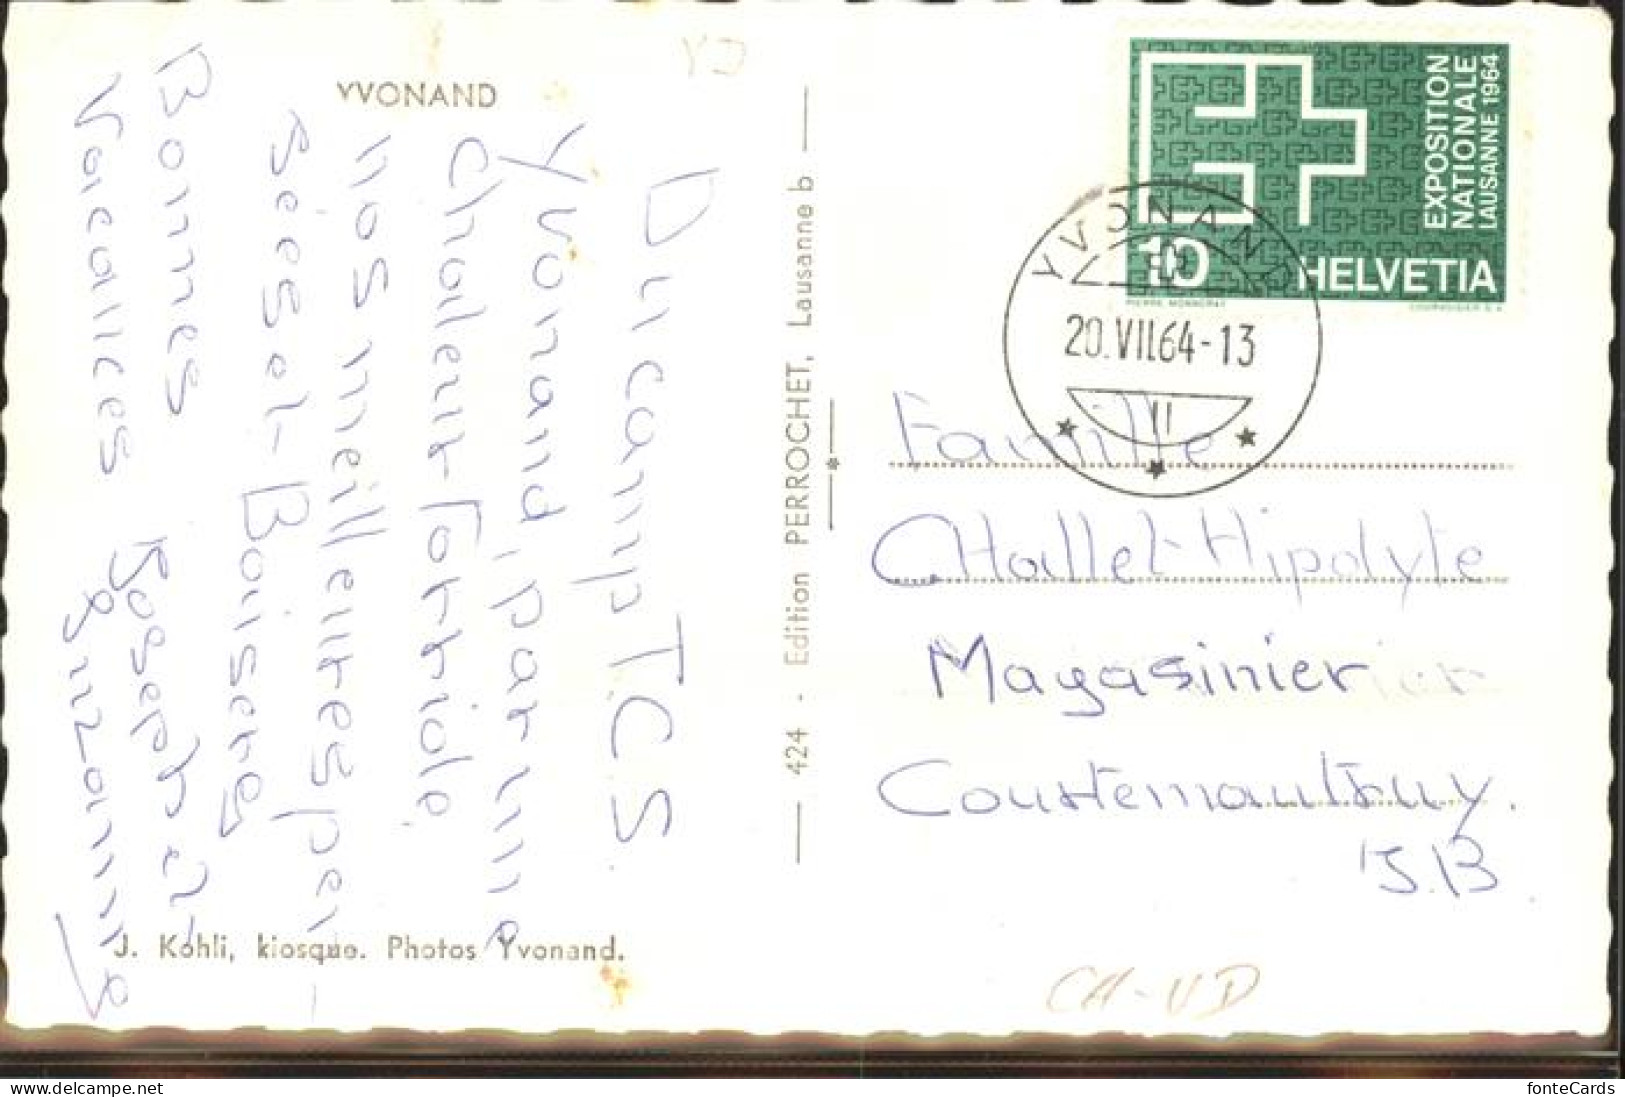 YVONAND
Du camp T.C.S.
Yvonand, par une
chaleur torride,
nos meilleures pen-
sées et Baisers
Bonnes
Vacances
Suzanne
J. Kohli, kiosque. Photos Yvonand.
424 - Edition PERROCHET, Lausanne b
EXPOSITION
NATIONALE
LAUSANNE 1964
10 HELVETIA
YVONAND
20.VII.64-13
Famille
CHallet-Hipolyte
Magasinier
Courtemautruy.
J.B
CH-VD
VD
fonteCards
https://www.delcampe.net